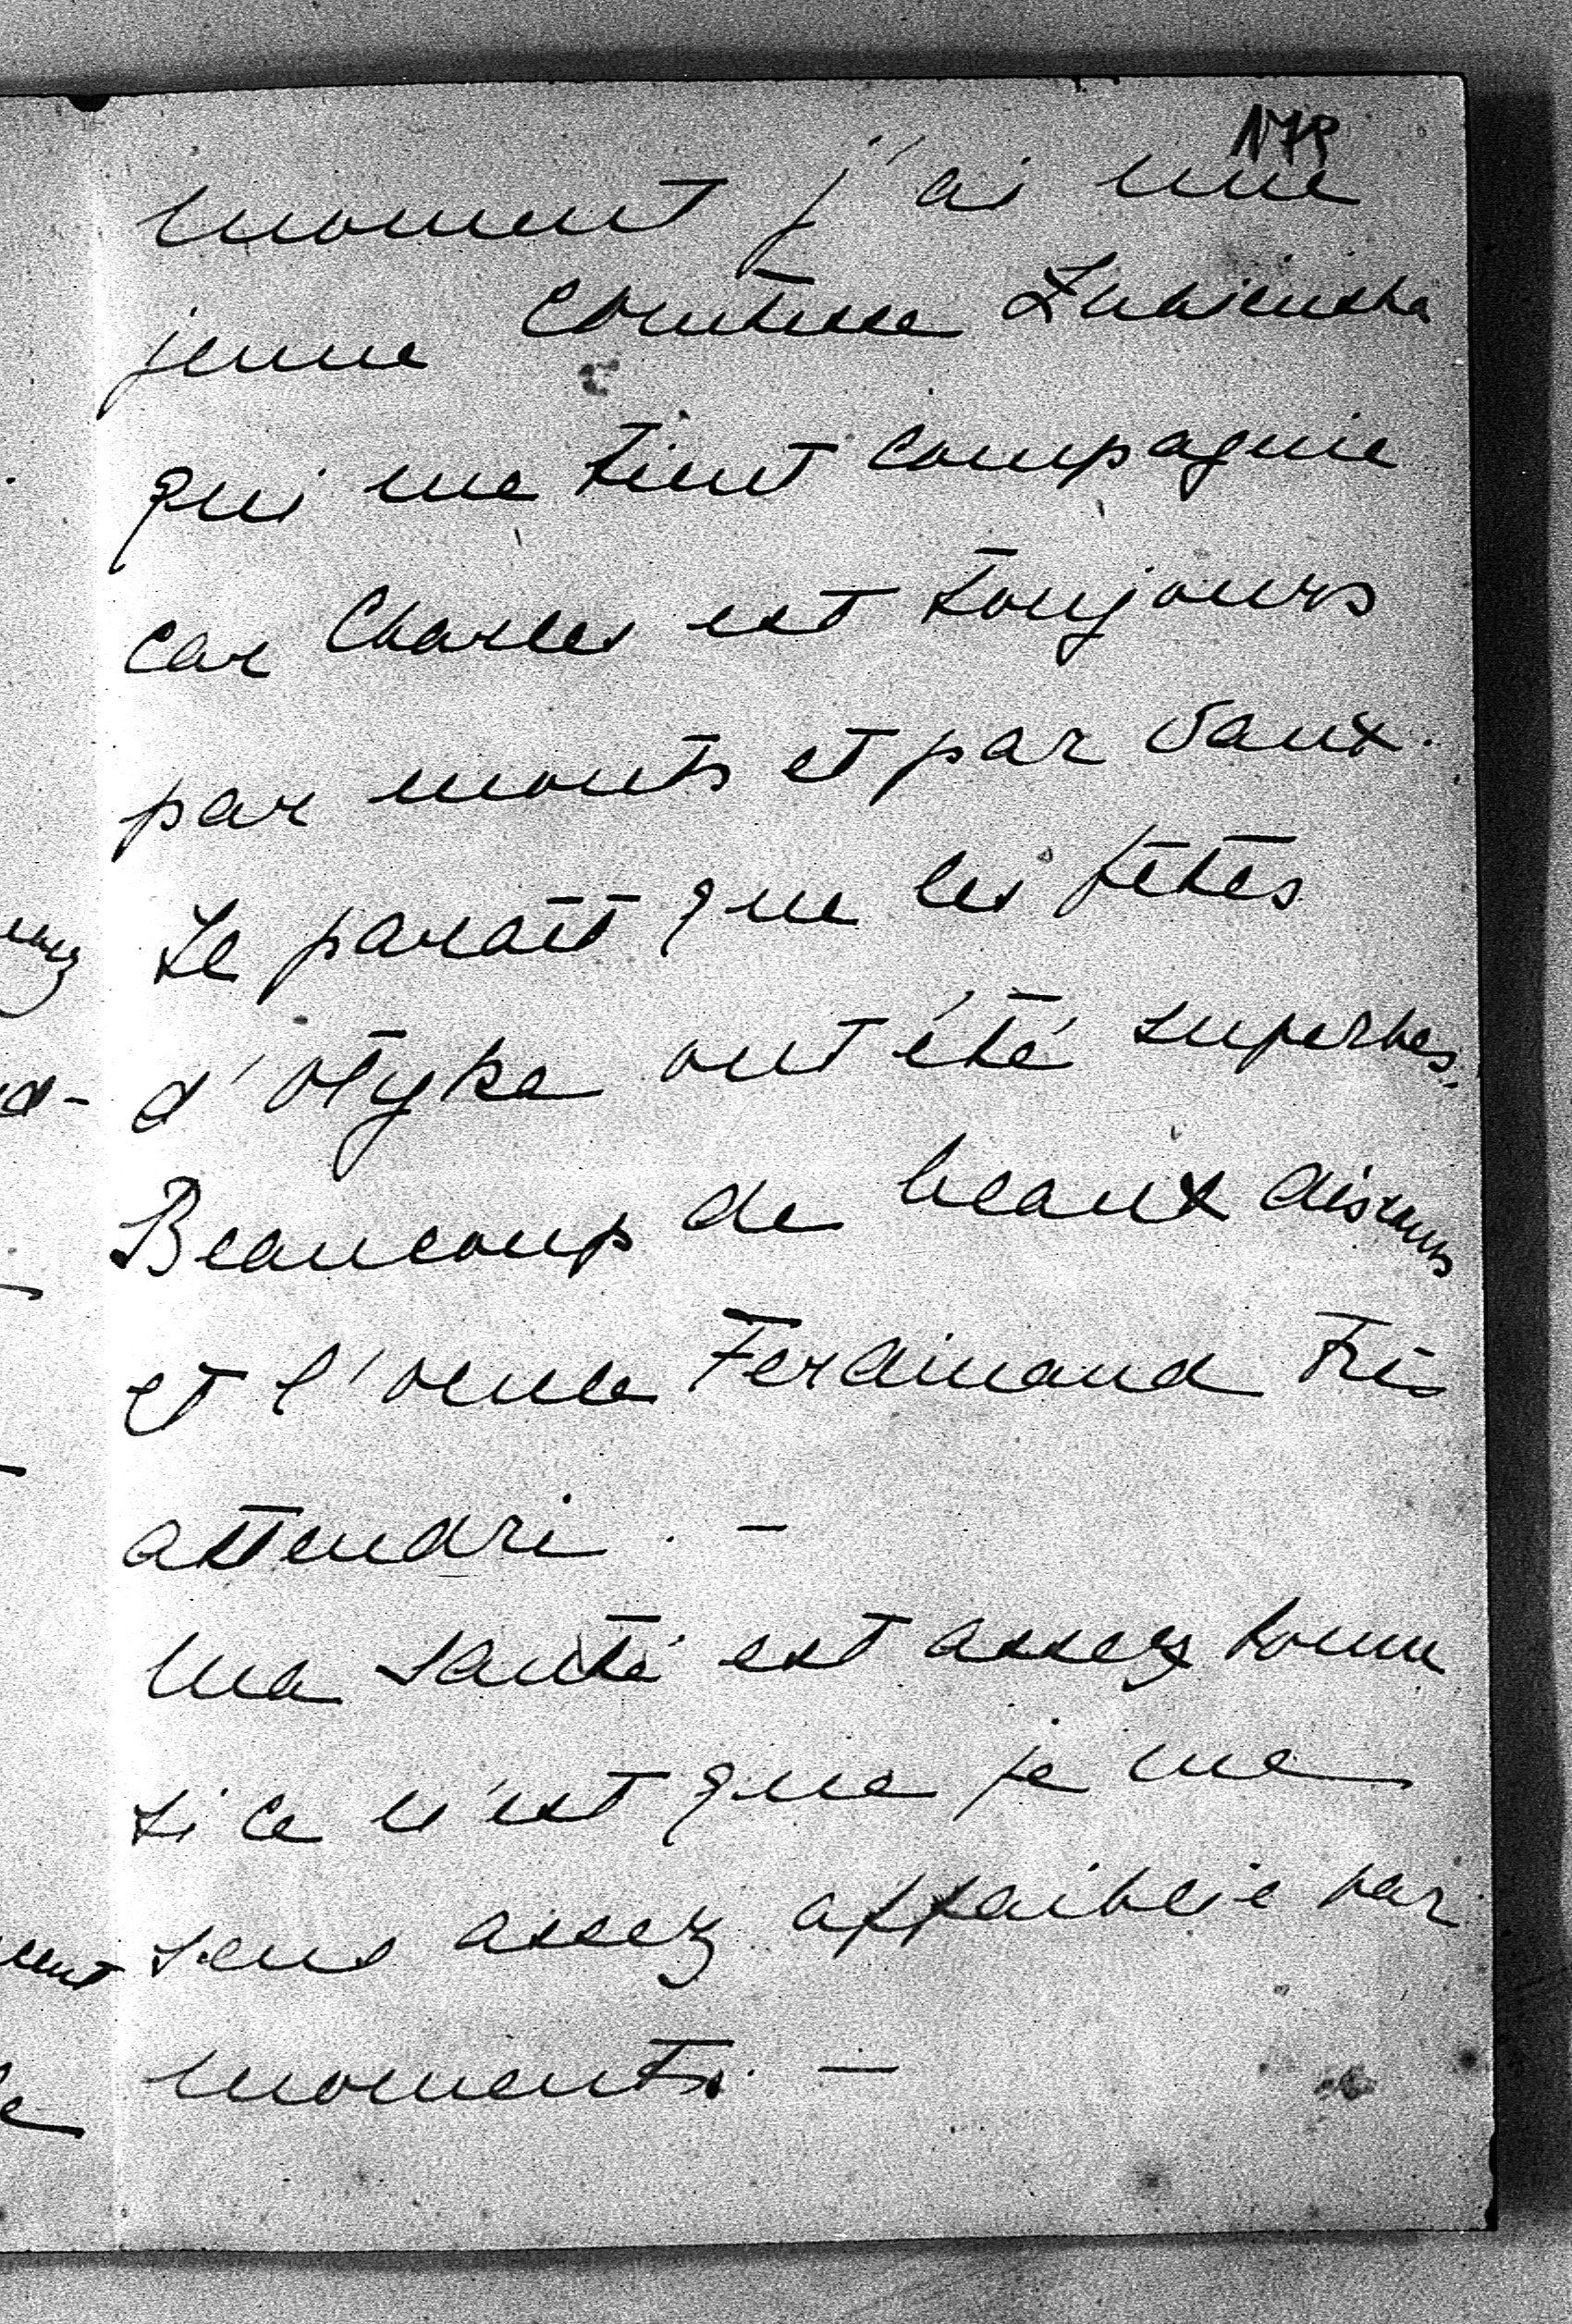 178
moment j'ai une
jeune Comtesse Lubienska
qui me tient compagnie
car Charles est toujours
par monts et par vaux.
Il paraît que les fêtes
d'Olyka ont été superbes.
Beaucoup de beaux discours
et l'oncle Ferdinand très
attendri. –
Ma santé est assez bonne
si ce n'est que je me
sens assez affaiblie par
moments. –